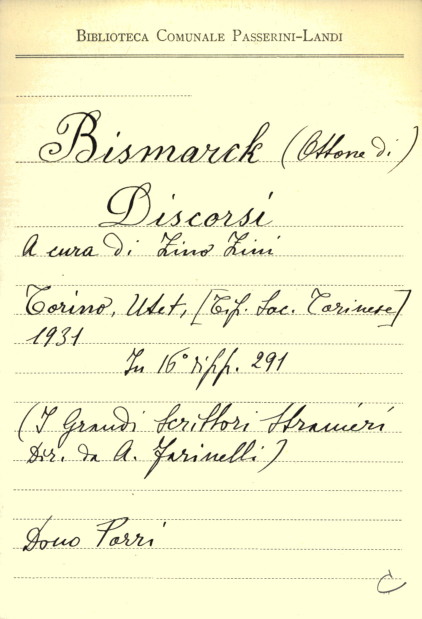 BIBLIOTECA COMUNALE PASSERINI-LANDI
Bismarck (Ottone di)
Discorsi
A cura di Zino Zini
Torino, Utet, [Tip. Soc. Torinese]
1931
In 16° di pp. 291
(I Grandi Scrittori Stranieri
Dir. da A. Farinelli)
Dono Porri
C